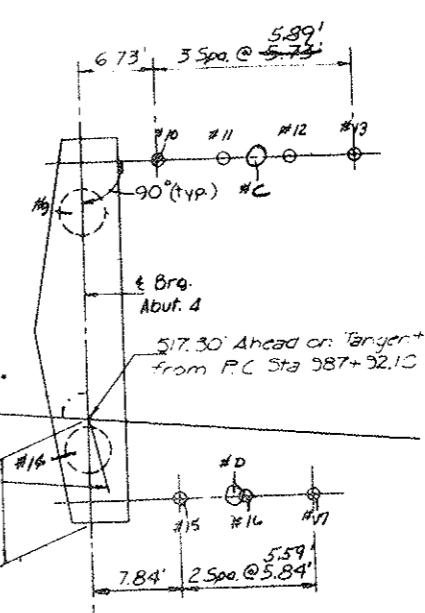 5.89'
6.73' 3 Spa. @ 5.73'
#10 #11 #12 #13
#C
90° (typ.)
#9
℄ Brg.
Abut. 4
517.30' Ahead on Tangent
from P.C. Sta 987+92.10
#D
#14
#15 #16 #17
5.59'
7.84' 2 Spa. @ 5.84'